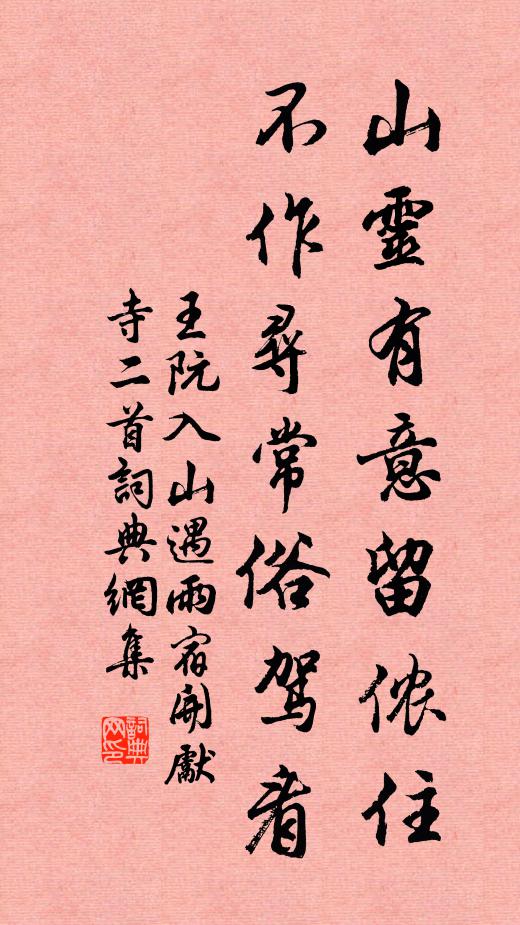 山靈有意留侬住
不作尋常俗駕看
王阮入山遇雨宿開獻
寺二首詞典網集
詞典
网印